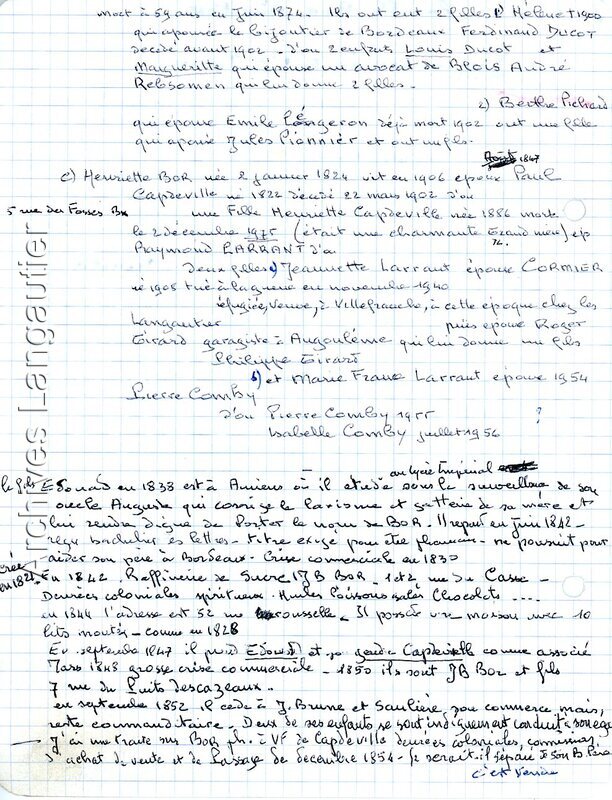 mort à 59 ans en Juin 1874. Ils ont eut 2 filles 1) Hélène † 1900
qui épouse le bijoutier de Bordeaux Ferdinand DUCOT
décédé avant 1902. d'où 2 enfants Louis Ducot et
Marguerite qui épouse un avocat de Blois André
Rebsomen qui lui donne 2 filles.
2) Berthe Pichard
qui épouse Emile Légeron déjà mort 1902 ont une fille
qui épouse Jules Pionnier et ont un fils.
Août 1847
c) Henriette BOR née 2 janvier 1824 vit en 1906 epoux Paul
Capdeville né 1822 décédé 22 mars 1902 d'où
5 rue des Fosses Bx
une fille Henriette Capdeville née 1886 morte
le 2 décembre 1975 (était une charmante Grand mère) ep
Raymond LARRANT d'où
Deux filles a) Jeannette Larrant épouse CORMIER
né 1905 tué à la guerre en novembre 1940
réfugiée, veuve, à Villefranche, à cette epoque chez les
Langautier puis epouse Roger
Girard garagiste à Angoulême qui lui donne un fils
Philippe Girard
b) et Marie France Larrant epouse 1954
Pierre Comby
d'où Pierre Comby 1955 ?
Isabelle Comby juillet 1956
Archives Langautier
au lycée Impérial
le fils Edouard en 1838 est à Amiens où il etudie sous la surveillance de son
oncle Auguste qui corrige le laxisme et gatterie de sa mère et
lui rendra digne de Porter le nom de BOR. Il repart en Juin 1842
reçu bachelier es lettres - titre exigé pour être pharmacien - ne poursuit pour
aider son père à Bordeaux. Crise commerciale en 1830
Créée en 1821
En 1842, Raffinerie de Sucre JB BOR. 1 et 2 rue du Casse -
Denrées coloniales spiritueux. Huiles Poissons salés Chocolats ....
en 1844 l'adresse est 52 rue rousselle. Il possède une maison avec 10
lits montés - comme en 1828
En septembre 1847 il prend Edouard et son gendre Capdeville comme associé
Mars 1848 grosse crise commerciale - 1850 ils sont JB Bor et fils
7 rue du Puits descazeaux.
en septembre 1852 il cède à J. Brune et Saulière son commerce mais
reste commanditaire. Deux de ses enfants se sont indignement conduit à son égard
J'ai une traite sur BOR ph. à VF de Capdeville denrées coloniales, commission
d'achat de vente et de Passage de décembre 1854 - Se serait-il séparé de son B. Père